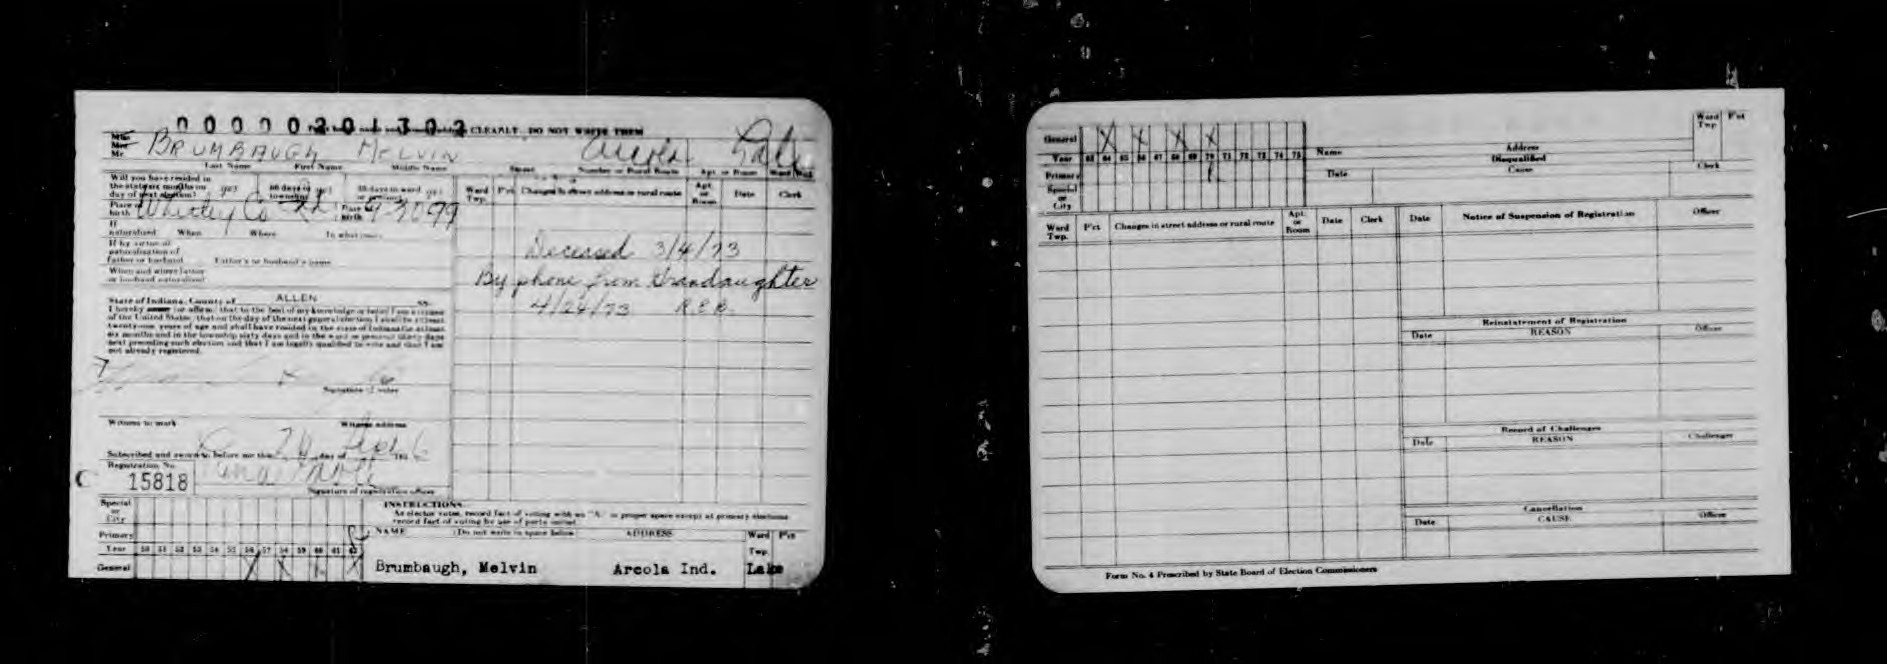 0000020 1302 CLEARLY DO NOT WRITE THEM
Miss
Mrs
Mr. BRUMBAUGH MELVIN Arcola Lake
Last Name First Name Middle Name Street Number or Rural Route Apt. or Room
Will you have resided in
the state six months on
day of next election? yes 60 days in
township yes 30 days in ward
or precinct yes
Ward
Twp. P'ct Changes in street address or rural route Apt.
or
Room Date Clerk
Place of
birth Whitley Co
birth
If
naturalized When Where In what court
If by virtue of
naturalization of
father or husband Father's or husband's name
When and where father
or husband naturalized
Deceased 3/4/73
By phone from Grandaughter
4/24/73 R.E.B.
State of Indiana, County of ALLEN SS.
I hereby swear (or affirm) that to the best of my knowledge or belief I am a citizen
of the United States; that on the day of the next general election I shall be at least
twenty-one years of age and shall have resided in the state of Indiana for at least
six months and in the township sixty days and in the ward or precinct thirty days
next preceding such election and that I am legally qualified to vote and that I am
not already registered.
Signature of voter
Witness to mark Witness address
Subscribed and sworn to before me this 24 day of 6
Registration No.
C 15818
Signature of registration officer
Special
or
City
Primary
Year 50 51 52 53 54 55 56 57 58 59 60 61 62
General X X X
INSTRUCTIONS
As elector votes, record fact of voting with an "X" in proper space except at primary elections
record fact of voting by use of party initial
NAME (Do not write in space below) ADDRESS Ward
Twp. P'ct
Brumbaugh, Melvin Arcola Ind. Lake
General X X X X
Year 63 64 65 66 67 68 69 70 71 72 73 74 75
Primary
Special
or
City
Name Address
Disqualified
Date Cause Clerk
Ward
Twp P'ct
Ward
Twp. P'ct Changes in street address or rural route Apt.
or
Room Date Clerk
Date Notice of Suspension of Registration Officer
Reinstatement of Registration
Date REASON Officer
Record of Challenges
Date REASON Challenger
Cancellation
Date CAUSE Officer
Form No. 4 Prescribed by State Board of Election Commissioners